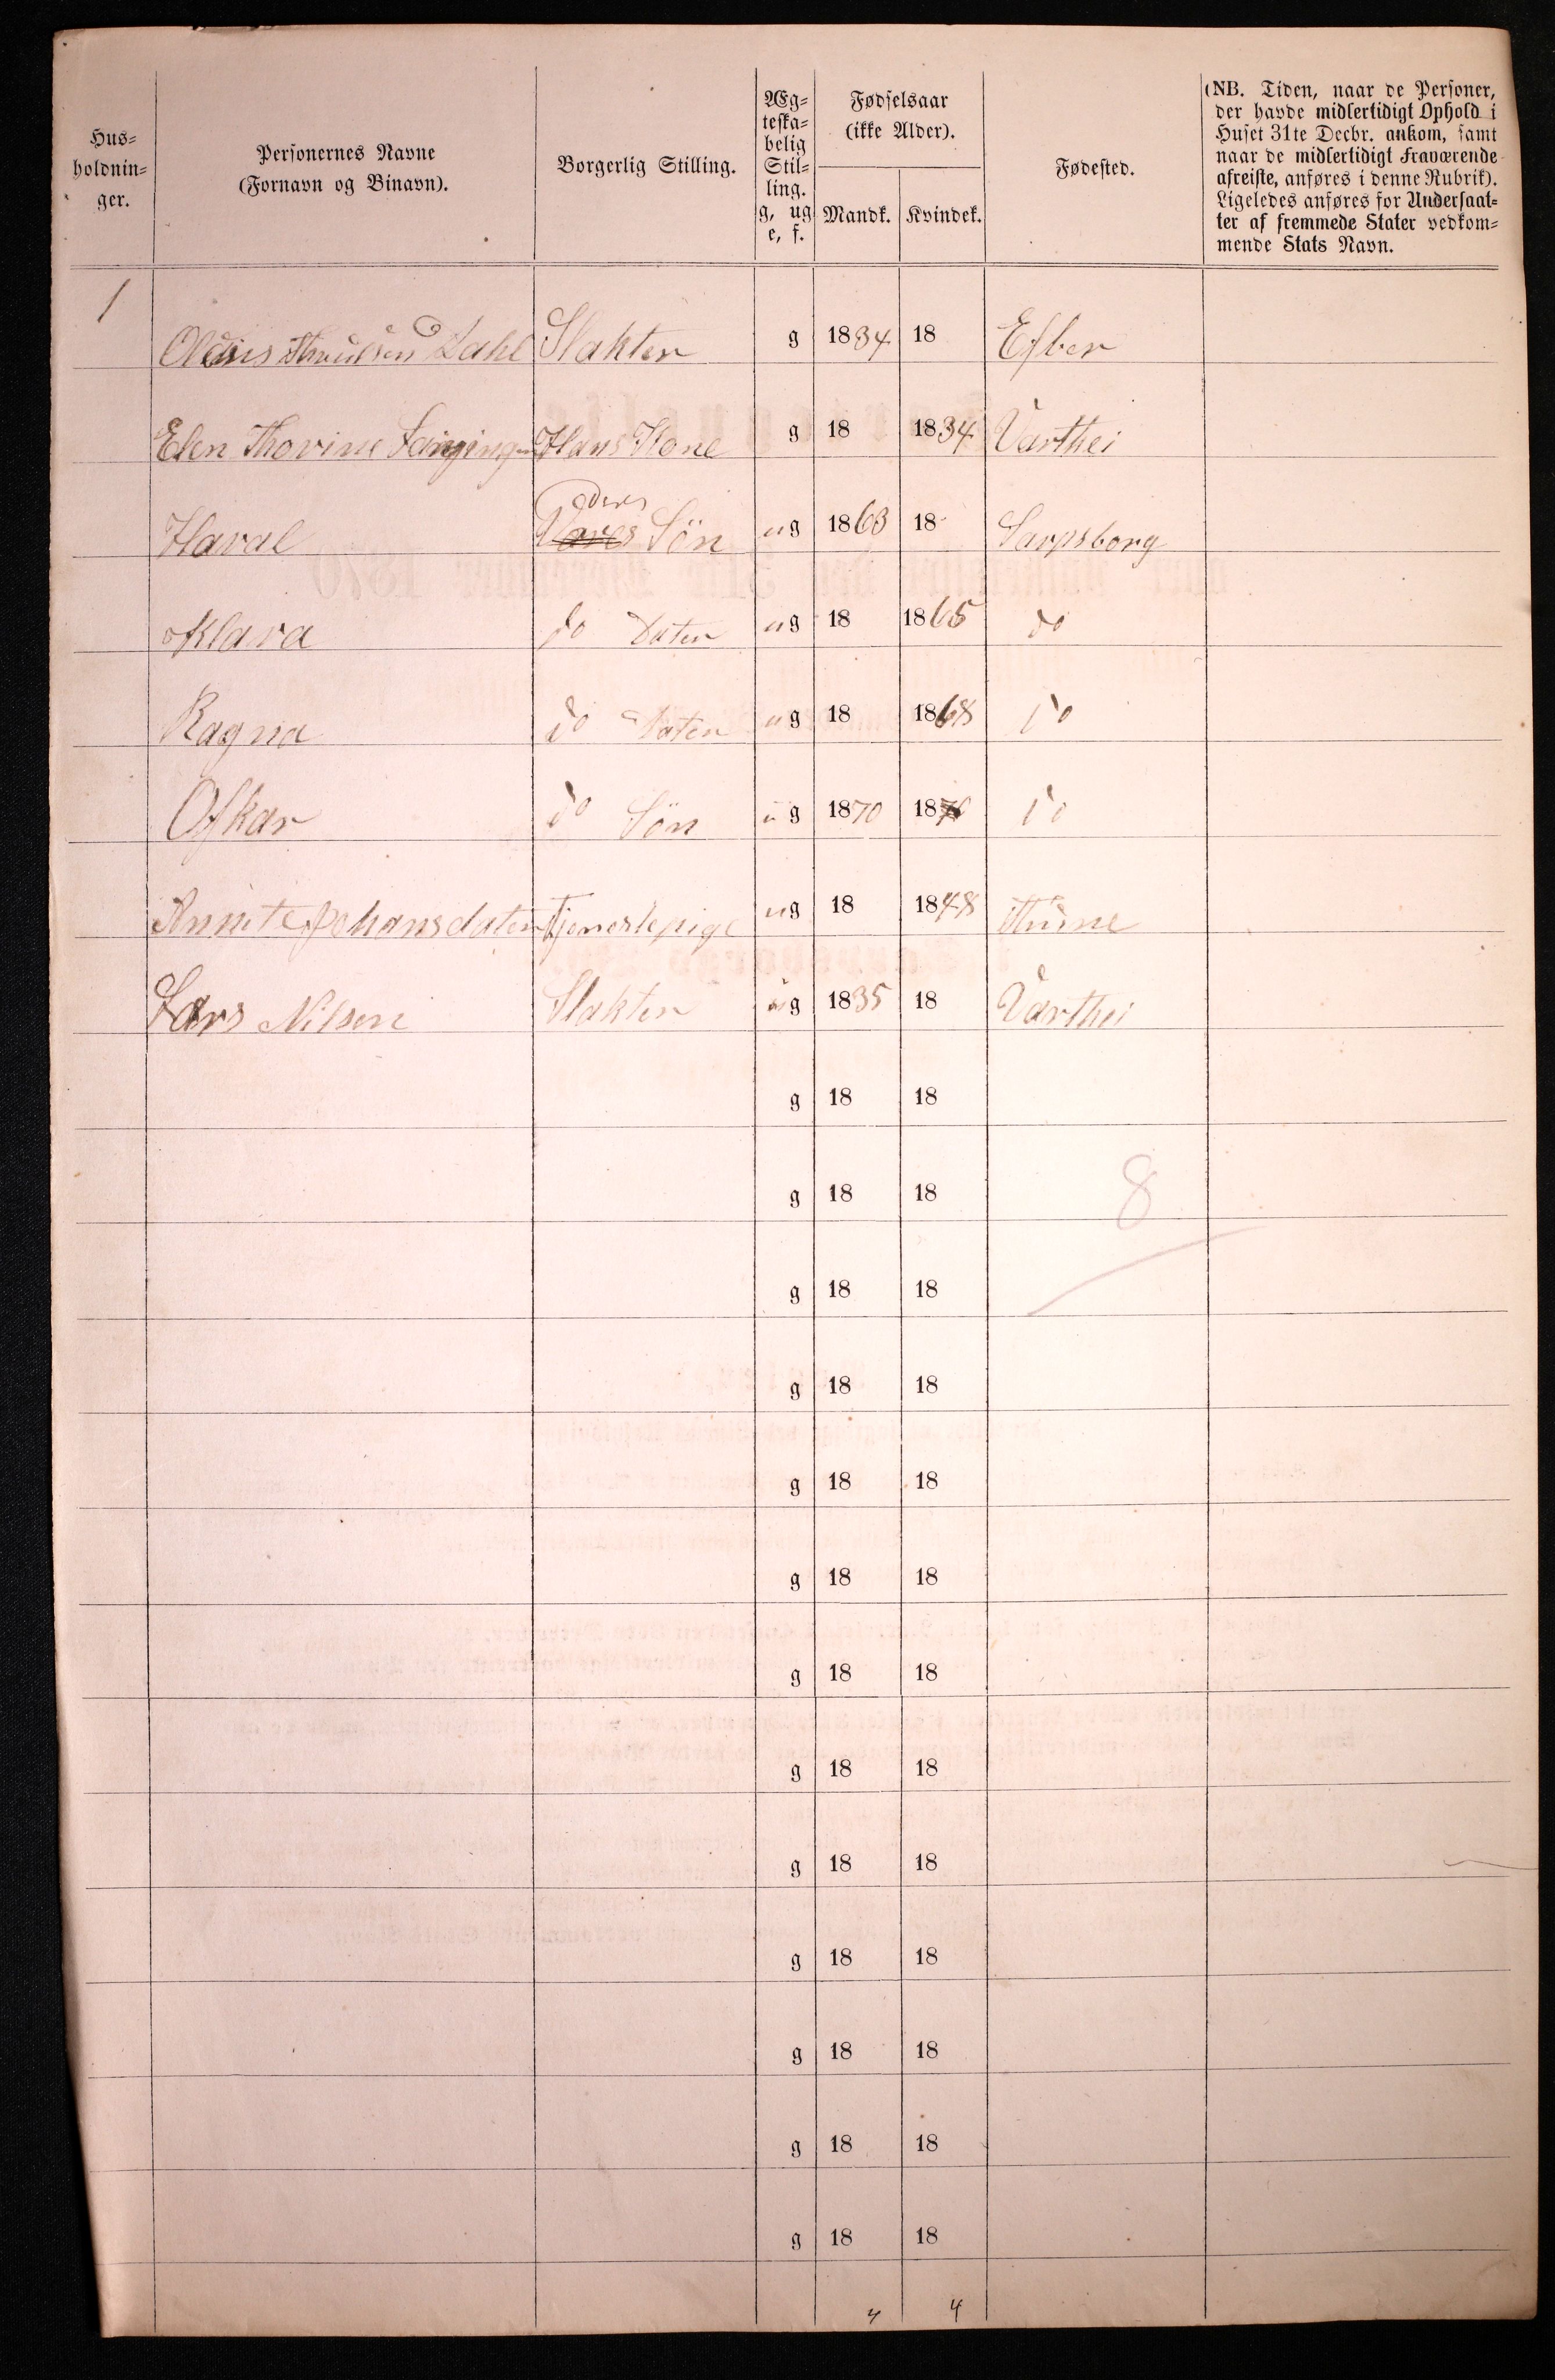 Hus-
holdnin-
ger.
Personernes Navne
(Fornavn og Binavn).
Borgerlig Stilling.
Æg-
teska-
belig
Stil-
ling.
g, ug
e, f.
Fødselsaar
(ikke Alder).
Mandk. Kvindek.
Fødested.
(NB. Tiden, naar de Personer,
der havde midlertidigt Ophold i
Huset 31te Decbr. ankom, samt
naar de midlertidigt Fraværende
afreiste, anføres i denne Rubrik).
Ligeledes anføres for Undersaat-
ter af fremmede Stater vedkom-
mende Stats Navn.
1 Dahl Slakter g 1834 18 Esber
Elen Thorine Hans Kone g 18 1834 Varthei
deres
Haral Vores Sön ug 1863 18 Sarpsborg
Klara do Dater ug 18 1865 do
Ragna do Dater ug 18 1868 do
Oskar do Sön ug 1870 1870 do
Annete Johansdater Tjenestepige ug 18 1848 Thune
Lars Nilsen Slakter ug 1835 18 Varthei
g 18 18
g 18 18 8
g 18 18
g 18 18
g 18 18
g 18 18
g 18 18
g 18 18
g 18 18
g 18 18
g 18 18
g 18 18
g 18 18
4 4